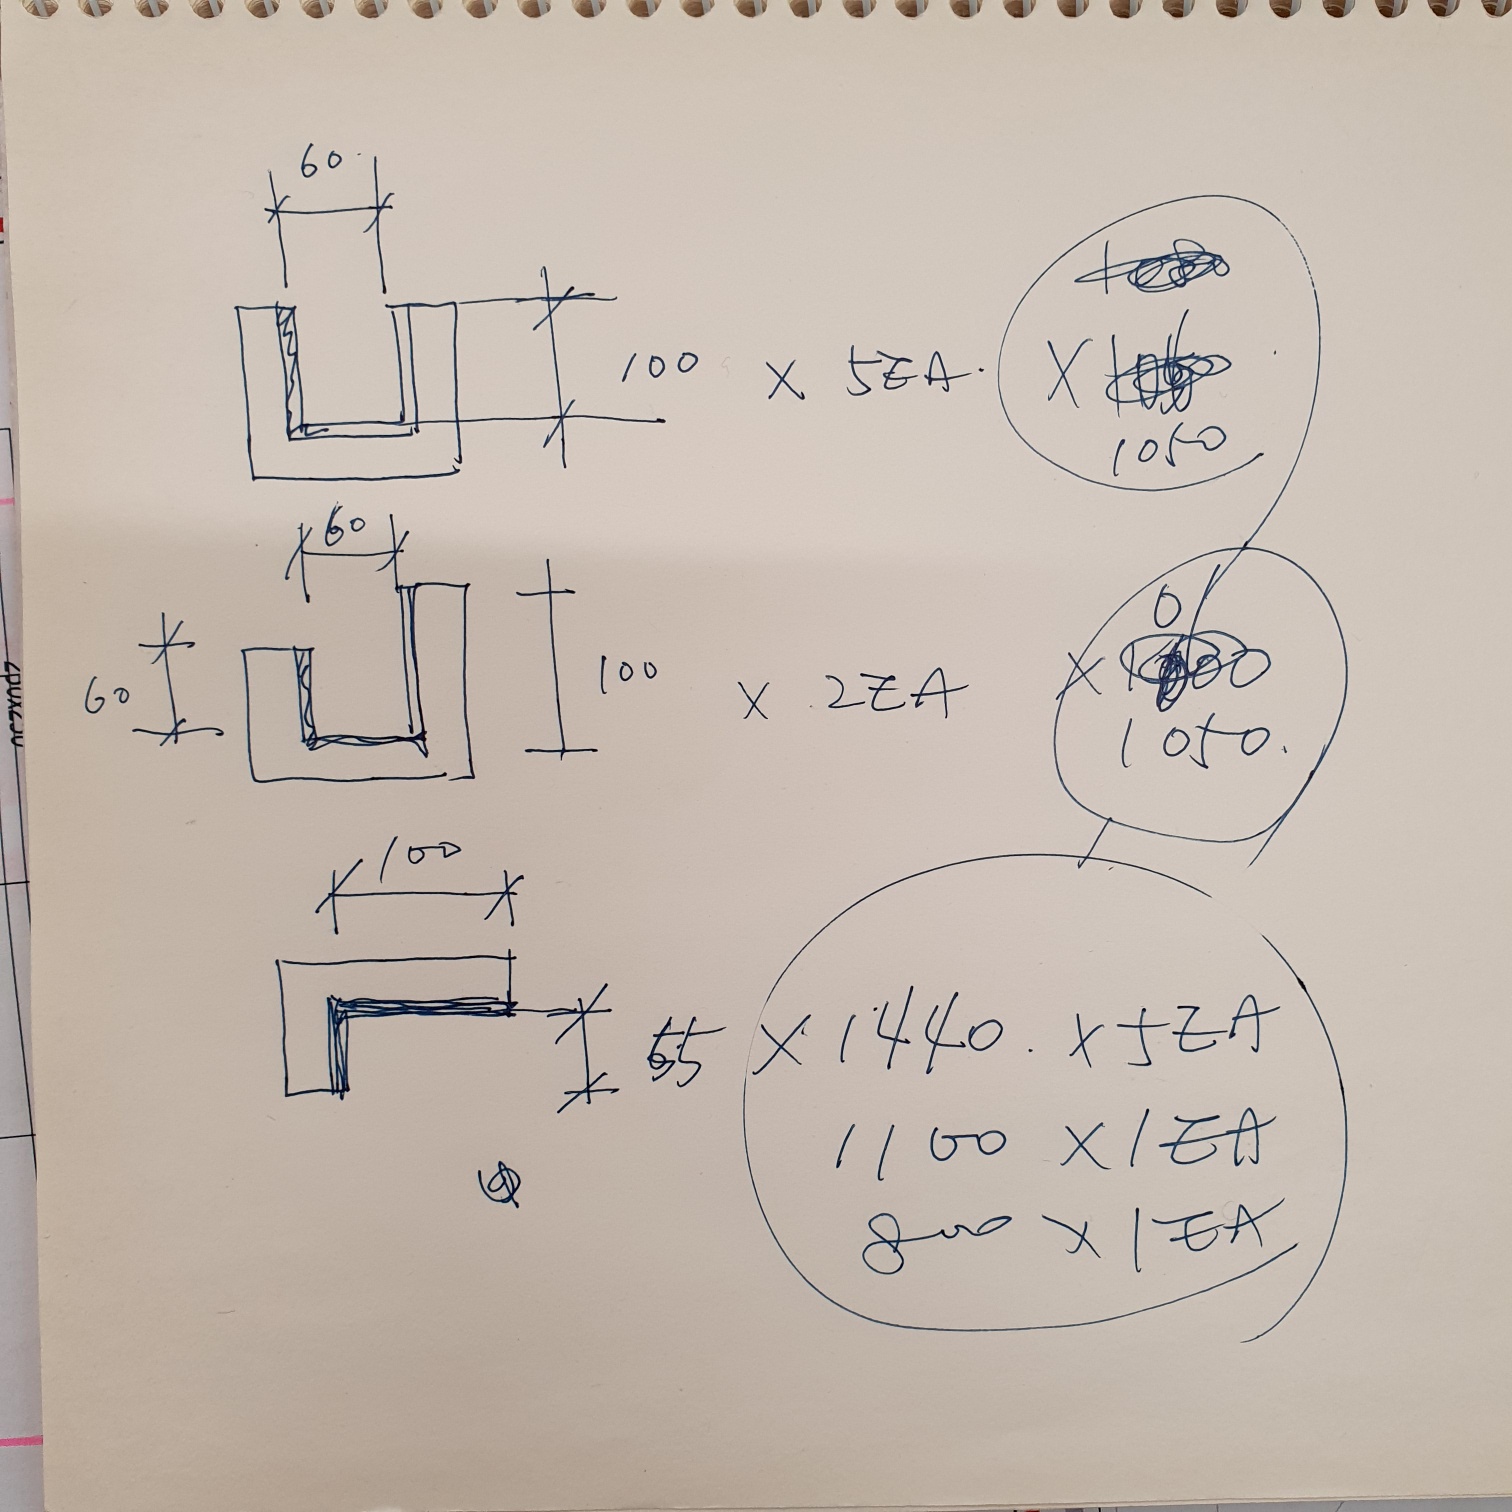 60
100 x 5EA.
x
1050
60
60
100
x 2EA
x
1050.
100
65 x 1440. x 5EA
1100 x 1EA
800 x 1EA